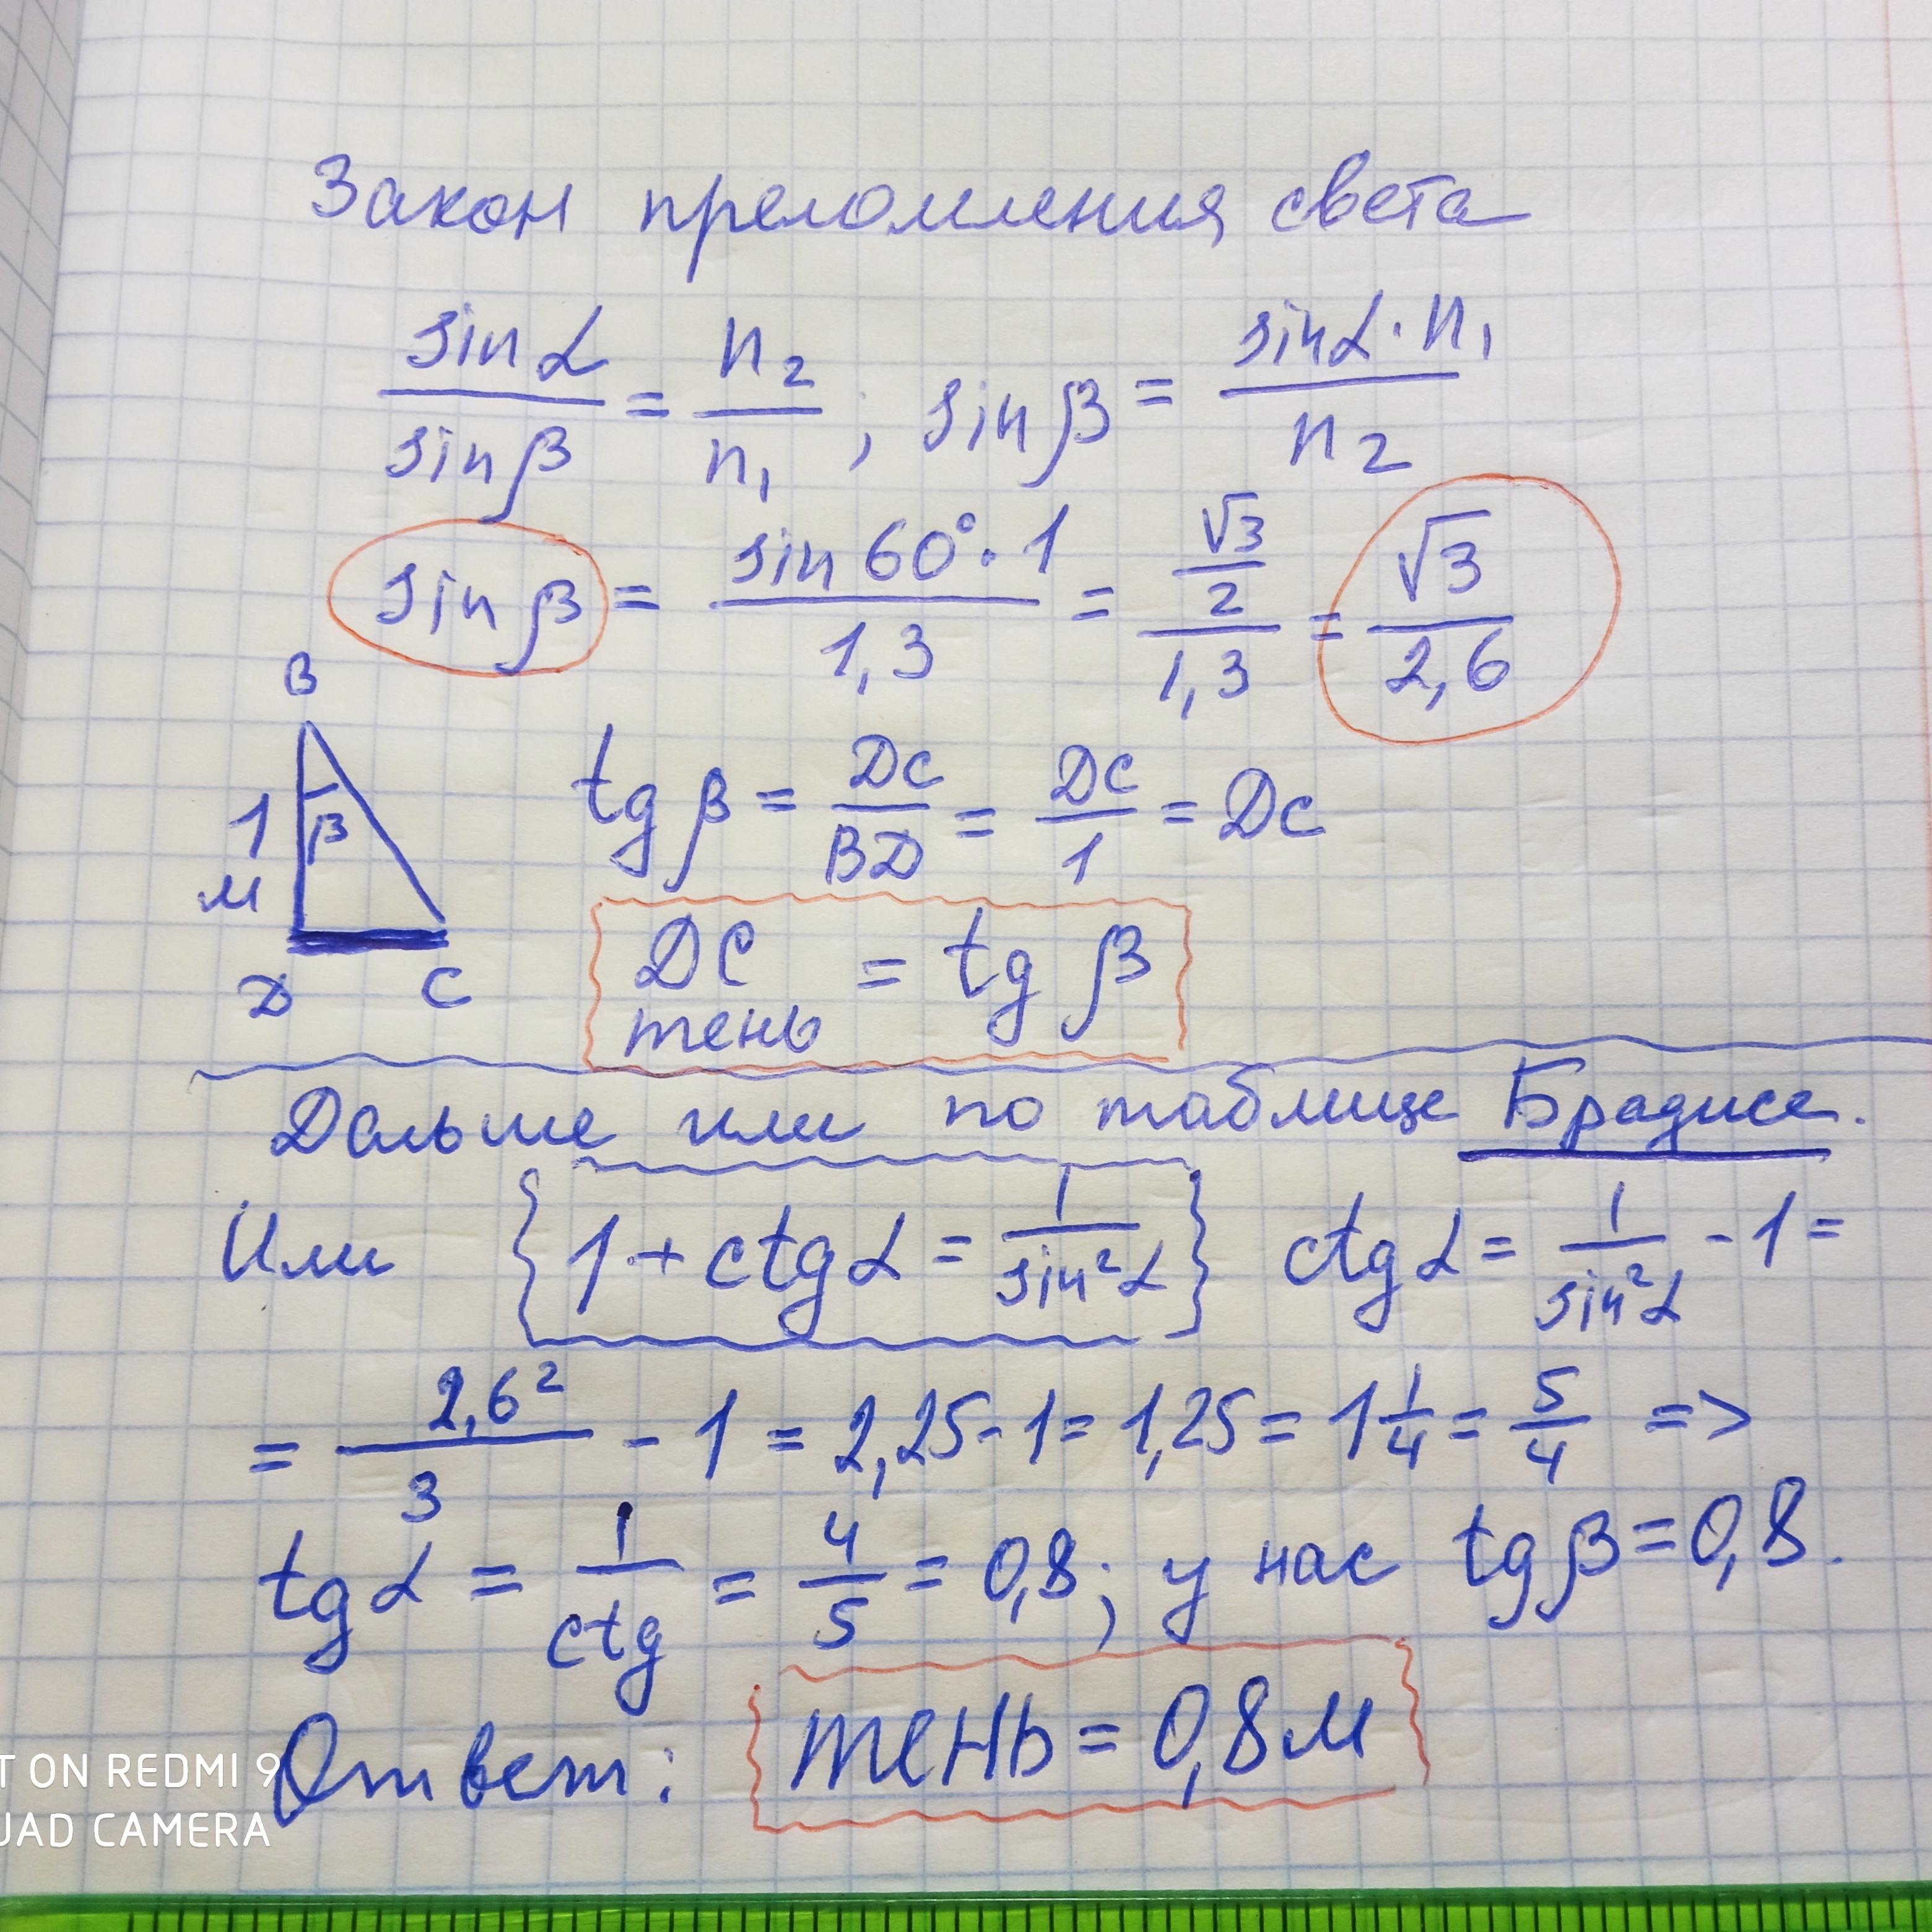 Закон преломления света
sinα/sinβ = n₂/n₁ ; sinβ = sinα·n₁/n₂
sinβ = sin60°·1/1,3 = (√3/2)/1,3 = √3/2,6
B
1 м
β
D C
tgβ = DC/BD = DC/1 = DC
DC = tgβ
тень
Дальше или по таблице Брадиса.
Или {1+ctgα = 1/sin²α} ctgα = 1/sin²α - 1 =
= 2,6²/3 - 1 = 2,25-1 = 1,25 = 1 1/4 = 5/4 =>
tgα = 1/ctg = 4/5 = 0,8; у нас tgβ = 0,8.
Ответ: тень = 0,8м
T ON REDMI 9
UAD CAMERA